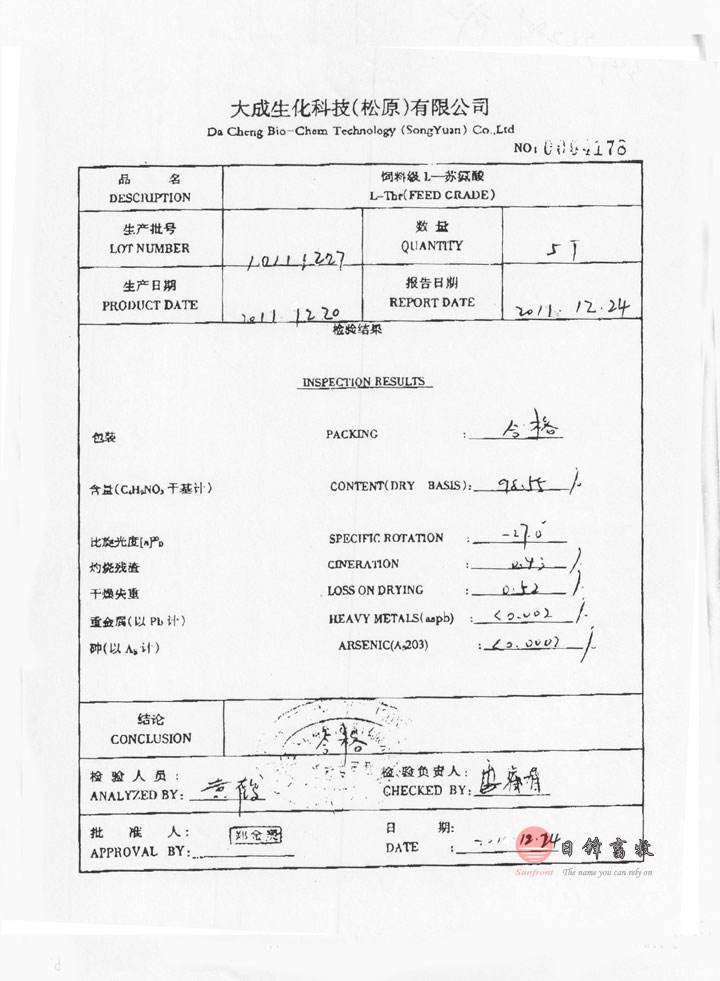 大成生化科技(松原)有限公司
Da Cheng Bio-Chem Technology (SongYuan) Co.,Ltd
NO: 0004178
品 名 饲料级 L—苏氨酸
DESCRIPTION L-Thr(FEED CRADE)
生产批号 数 量
LOT NUMBER QUANTITY 5T
生产日期 报告日期
PRODUCT DATE 2011. 12 20 REPORT DATE 2011. 12. 24
检验结果
INSPECTION RESULTS
包装 PACKING : 合格
含量(C4H9NO3干基计) CONTENT(DRY BASIS): 98.55 %
比旋光度[a]20D SPECIFIC ROTATION :
灼烧残渣 CINERATION : %
干燥失重 LOSS ON DRYING : 0.52 %
重金属(以 Pb 计) HEAVY METALS(aspb) : <0.002 %
砷(以 As 计) ARSENIC(As203) : <0.0002 %
结论
CONCLUSION 合格
检 验 人 员 : 检 验 负 责 人 :
ANALYZED BY: CHECKED BY:
批 准 人: 日 期:
APPROVAL BY: DATE : 12.24
日锋畜牧
Sunfront The name you can rely on